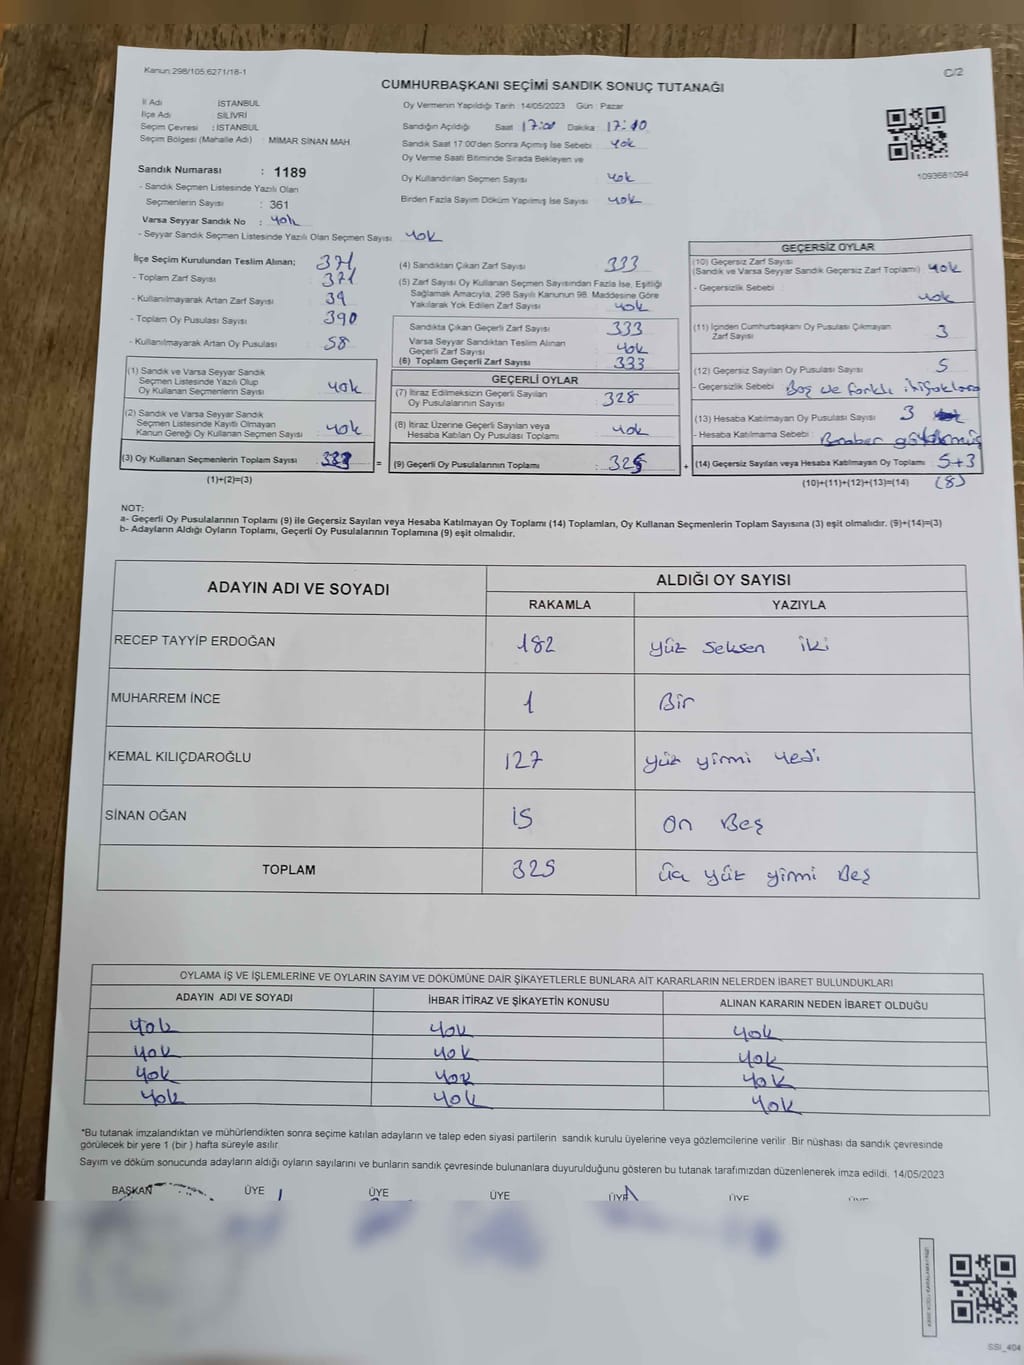 Kanun:298/105,6271/18-1
C/2
CUMHURBAŞKANI SEÇİMİ SANDIK SONUÇ TUTANAĞI
İl Adı İSTANBUL
İlçe Adı : SİLİVRİ
Seçim Çevresi : İSTANBUL
Seçim Bölgesi (Mahalle Adı) : MİMAR SİNAN MAH.
Sandık Numarası : 1189
- Sandık Seçmen Listesinde Yazılı Olan
Seçmenlerin Sayısı : 361
Varsa Seyyar Sandık No : yok
- Seyyar Sandık Seçmen Listesinde Yazılı Olan Seçmen Sayısı yok
Oy Vermenin Yapıldığı Tarih :14/05/2023 Gün : Pazar
Sandığın Açıldığı Saat 17:00 Dakika : 17:10
Sandık Saat 17:00'den Sonra Açımış İse Sebebi : yok
Oy Verme Saati Bitiminde Sırada Bekleyen ve
Oy Kullandırılan Seçmen Sayısı yok
Birden Fazla Sayım Döküm Yapılmış İse Sayısı yok
1093681094
İlçe Seçim Kurulundan Teslim Alınan; 371
- Toplam Zarf Sayısı : 371
- Kullanılmayarak Artan Zarf Sayısı : 39
- Toplam Oy Pusulası Sayısı : 390
- Kullanılmayarak Artan Oy Pusulası : 58
(1) Sandık ve Varsa Seyyar Sandık
Seçmen Listesinde Yazılı Olup
Oy Kullanan Seçmenlerin Sayısı : yok
(2) Sandık ve Varsa Seyyar Sandık
Seçmen Listesinde Kayıtlı Olmayan
Kanun Gereği Oy Kullanan Seçmen Sayısı : yok
(3) Oy Kullanan Seçmenlerin Toplam Sayısı :
(1)+(2)=(3)
(4) Sandıktan Çıkan Zarf Sayısı : 333
(5) Zarf Sayısı Oy Kullanan Seçmen Sayısından Fazla İse, Eşitliği
Sağlamak Amacıyla, 298 Sayılı Kanunun 98. Maddesine Göre
Yakılarak Yok Edilen Zarf Sayısı : yok
Sandıkta Çıkan Geçerli Zarf Sayısı : 333
Varsa Seyyar Sandıktan Teslim Alınan
Geçerli Zarf Sayısı : yok
(6) Toplam Geçerli Zarf Sayısı : 333
GEÇERLİ OYLAR
(7) İtiraz Edilmeksizin Geçerli Sayılan
Oy Pusulalarının Sayısı : 328
(8) İtiraz Üzerine Geçerli Sayılan veya
Hesaba Katılan Oy Pusulası Toplamı : yok
= (9) Geçerli Oy Pusulalarının Toplamı : 325 +
GEÇERSİZ OYLAR
(10) Geçersiz Zarf Sayısı
(Sandık ve Varsa Seyyar Sandık Geçersiz Zarf Toplamı) : yok
- Geçersizlik Sebebi : yok
(11) İçinden Cumhurbaşkanı Oy Pusulası Çıkmayan
Zarf Sayısı : 3
(12) Geçersiz Sayılan Oy Pusulası Sayısı : 5
- Geçersizlik Sebebi : Boş ve farklı
(13) Hesaba Katılmayan Oy Pusulası Sayısı : 3
- Hesaba Katılmama Sebebi :
(14) Geçersiz Sayılan veya Hesaba Katılmayan Oy Toplamı : 5+3
(10)+(11)+(12)+(13)=(14) (8)
NOT:
a- Geçerli Oy Pusulalarının Toplamı (9) ile Geçersiz Sayılan veya Hesaba Katılmayan Oy Toplamı (14) Toplamları, Oy Kullanan Seçmenlerin Toplam Sayısına (3) eşit olmalıdır. (9)+(14)=(3)
b- Adayların Aldığı Oyların Toplamı, Geçerli Oy Pusulalarının Toplamına (9) eşit olmalıdır.
ADAYIN ADI VE SOYADI ALDIĞI OY SAYISI
RAKAMLA YAZIYLA
RECEP TAYYİP ERDOĞAN 182 yüz seksen iki
MUHARREM İNCE 1 Bir
KEMAL KILIÇDAROĞLU 127 yüz yirmi yedi
SİNAN OĞAN 15 on Beş
TOPLAM 325 üç yüz yirmi Beş
OYLAMA İŞ VE İŞLEMLERİNE VE OYLARIN SAYIM VE DÖKÜMÜNE DAİR ŞİKAYETLERLE BUNLARA AİT KARARLARIN NELERDEN İBARET BULUNDUKLARI
ADAYIN ADI VE SOYADI İHBAR İTİRAZ VE ŞİKAYETİN KONUSU ALINAN KARARIN NEDEN İBARET OLDUĞU
yok yok yok
yok yok yok
yok yok yok
yok yok yok
*Bu tutanak imzalandıktan ve mühürlendikten sonra seçime katılan adayların ve talep eden siyasi partilerin sandık kurulu üyelerine veya gözlemcilerine verilir .Bir nüshası da sandık çevresinde
görülecek bir yere 1 (bir ) hafta süreyle asılır.
Sayım ve döküm sonucunda adayların aldığı oyların sayılarını ve bunların sandık çevresinde bulunanlara duyurulduğunu gösteren bu tutanak tarafımızdan düzenlenerek imza edildi. 14/05/2023
BAŞKAN ÜYE ÜYE ÜYE ÜYE ÜYE
SSI_404